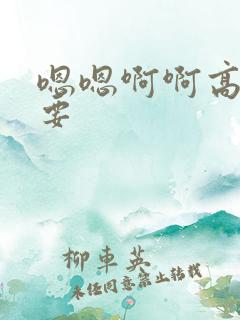 嗯嗯啊啊高
要
柳車英
未经同意禁止转载